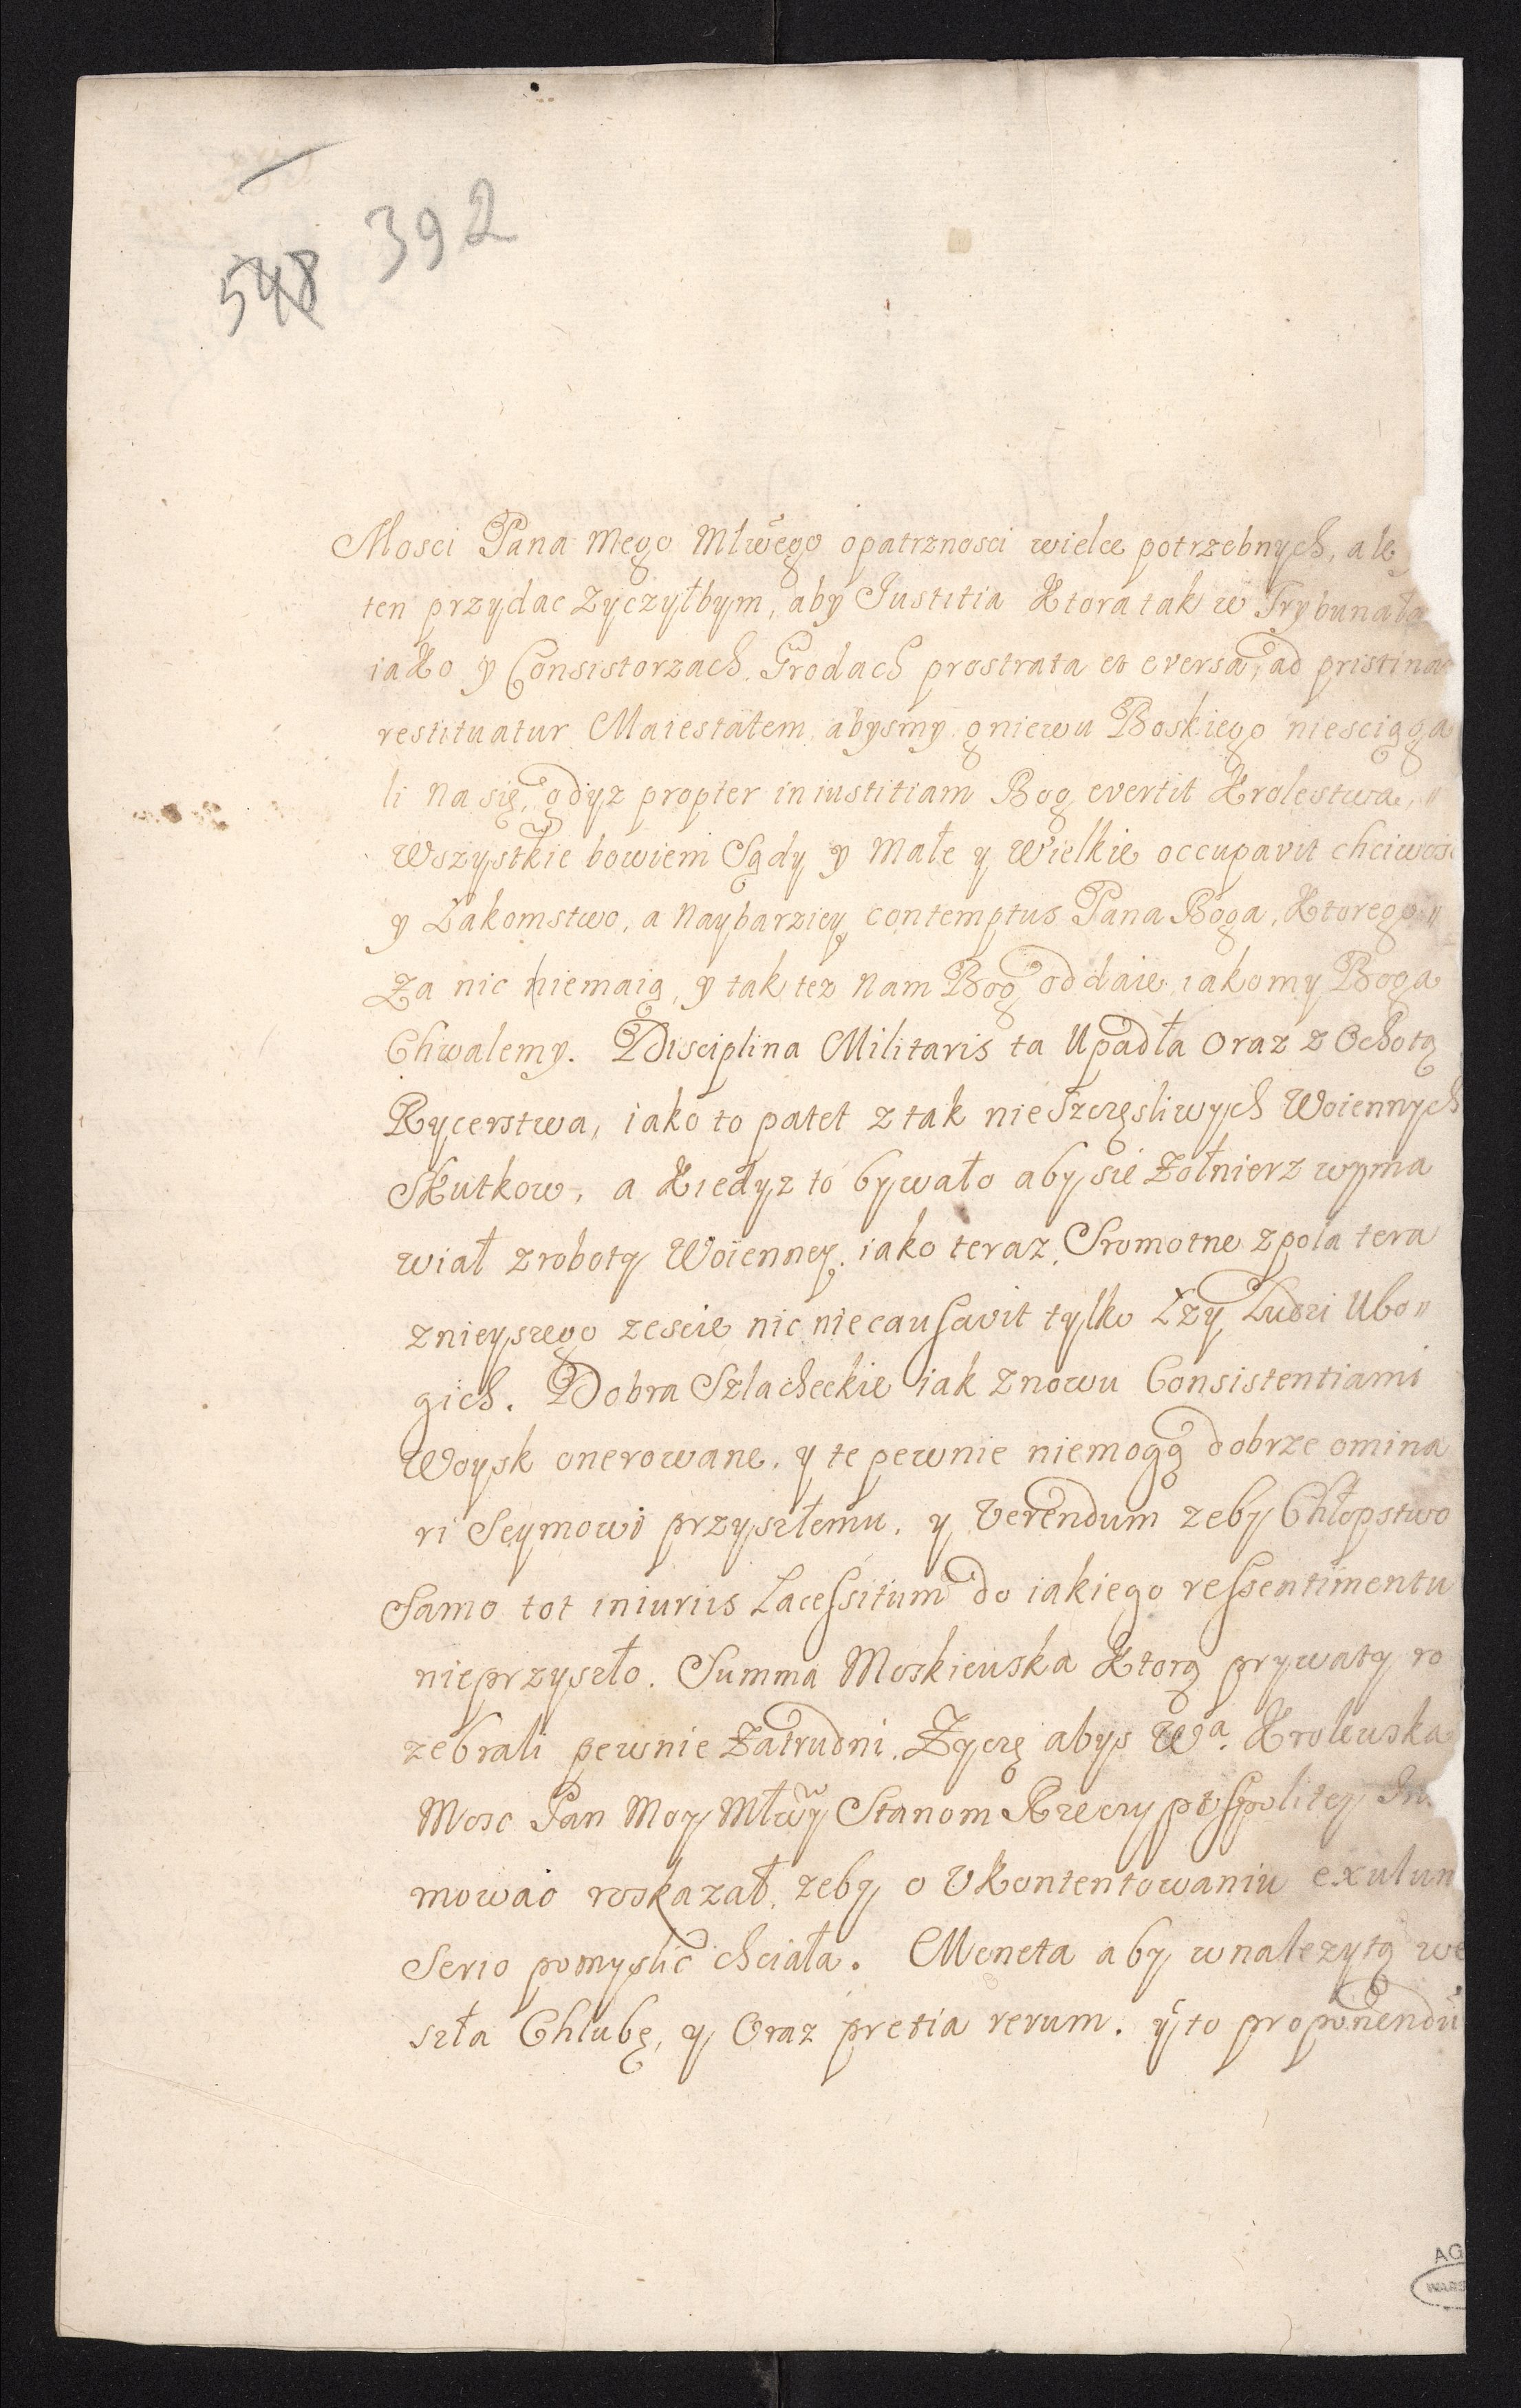 548 392
Mosci Pana Mego Młwego opatrznosci wielce potrzebnych, ale
ten przydac Zyczyłbym, aby Justitia Ktora tak w Trybunała
iako y Consistorzach Grodach prostrata et eversa, ad pristina
restituatur Maiestatem abysmy gniewu Boskiego niesciąga
li na się, gdyz propter iniustitiam Bog evertit Krolestwa,
Wszystkie bowiem Sądy y Małe y Wielkie occupavit chciwosc
y Łakomstwo, a Naybarziey contemptus Pana Boga, Ktorego
Za nic niemaią, y tak tez Nam Bog oddaie iakomy Boga
Chwalemy. Disciplina Militaris ta Upadła Oraz z Ochotą
Rycerstwa, iako to patet z tak nieszczęsliwych Woiennych
Skutkow, a Kiedyz to bywało aby sie Zołnierz wyma
wiał z roboty Woienney iako teraz, Sromotne z pola tera
znieyszego zescie nic nie causavit tylko Łzy Ludzi Ubo
gich. Dobra Szlacheckie iak znowu Consistentiami
Woysk onerowane, y te pewnie niemogą dobrze omina
ri Seymowi przyszłemu, y Verendum zeby Chłopstwo
Samo tot iniuriis Lacessitum do iakiego ressentimentu
nieprzyszło. Summa Moskiewska Ktorą prywaty ro
zebrali pewnie Zatrudni, Zyczę abys Wa. Krolewska
Mosc Pan Moy Młwy Stanom Rzeczyptospolitey In
mowac roskazał, zeby o Ukontentowaniu exulun
Serio pomyslic chciała. Moneta aby wnalezytą we
szła Chlubę, y Oraz pretia rerum. y to proponendu
AG
WARS